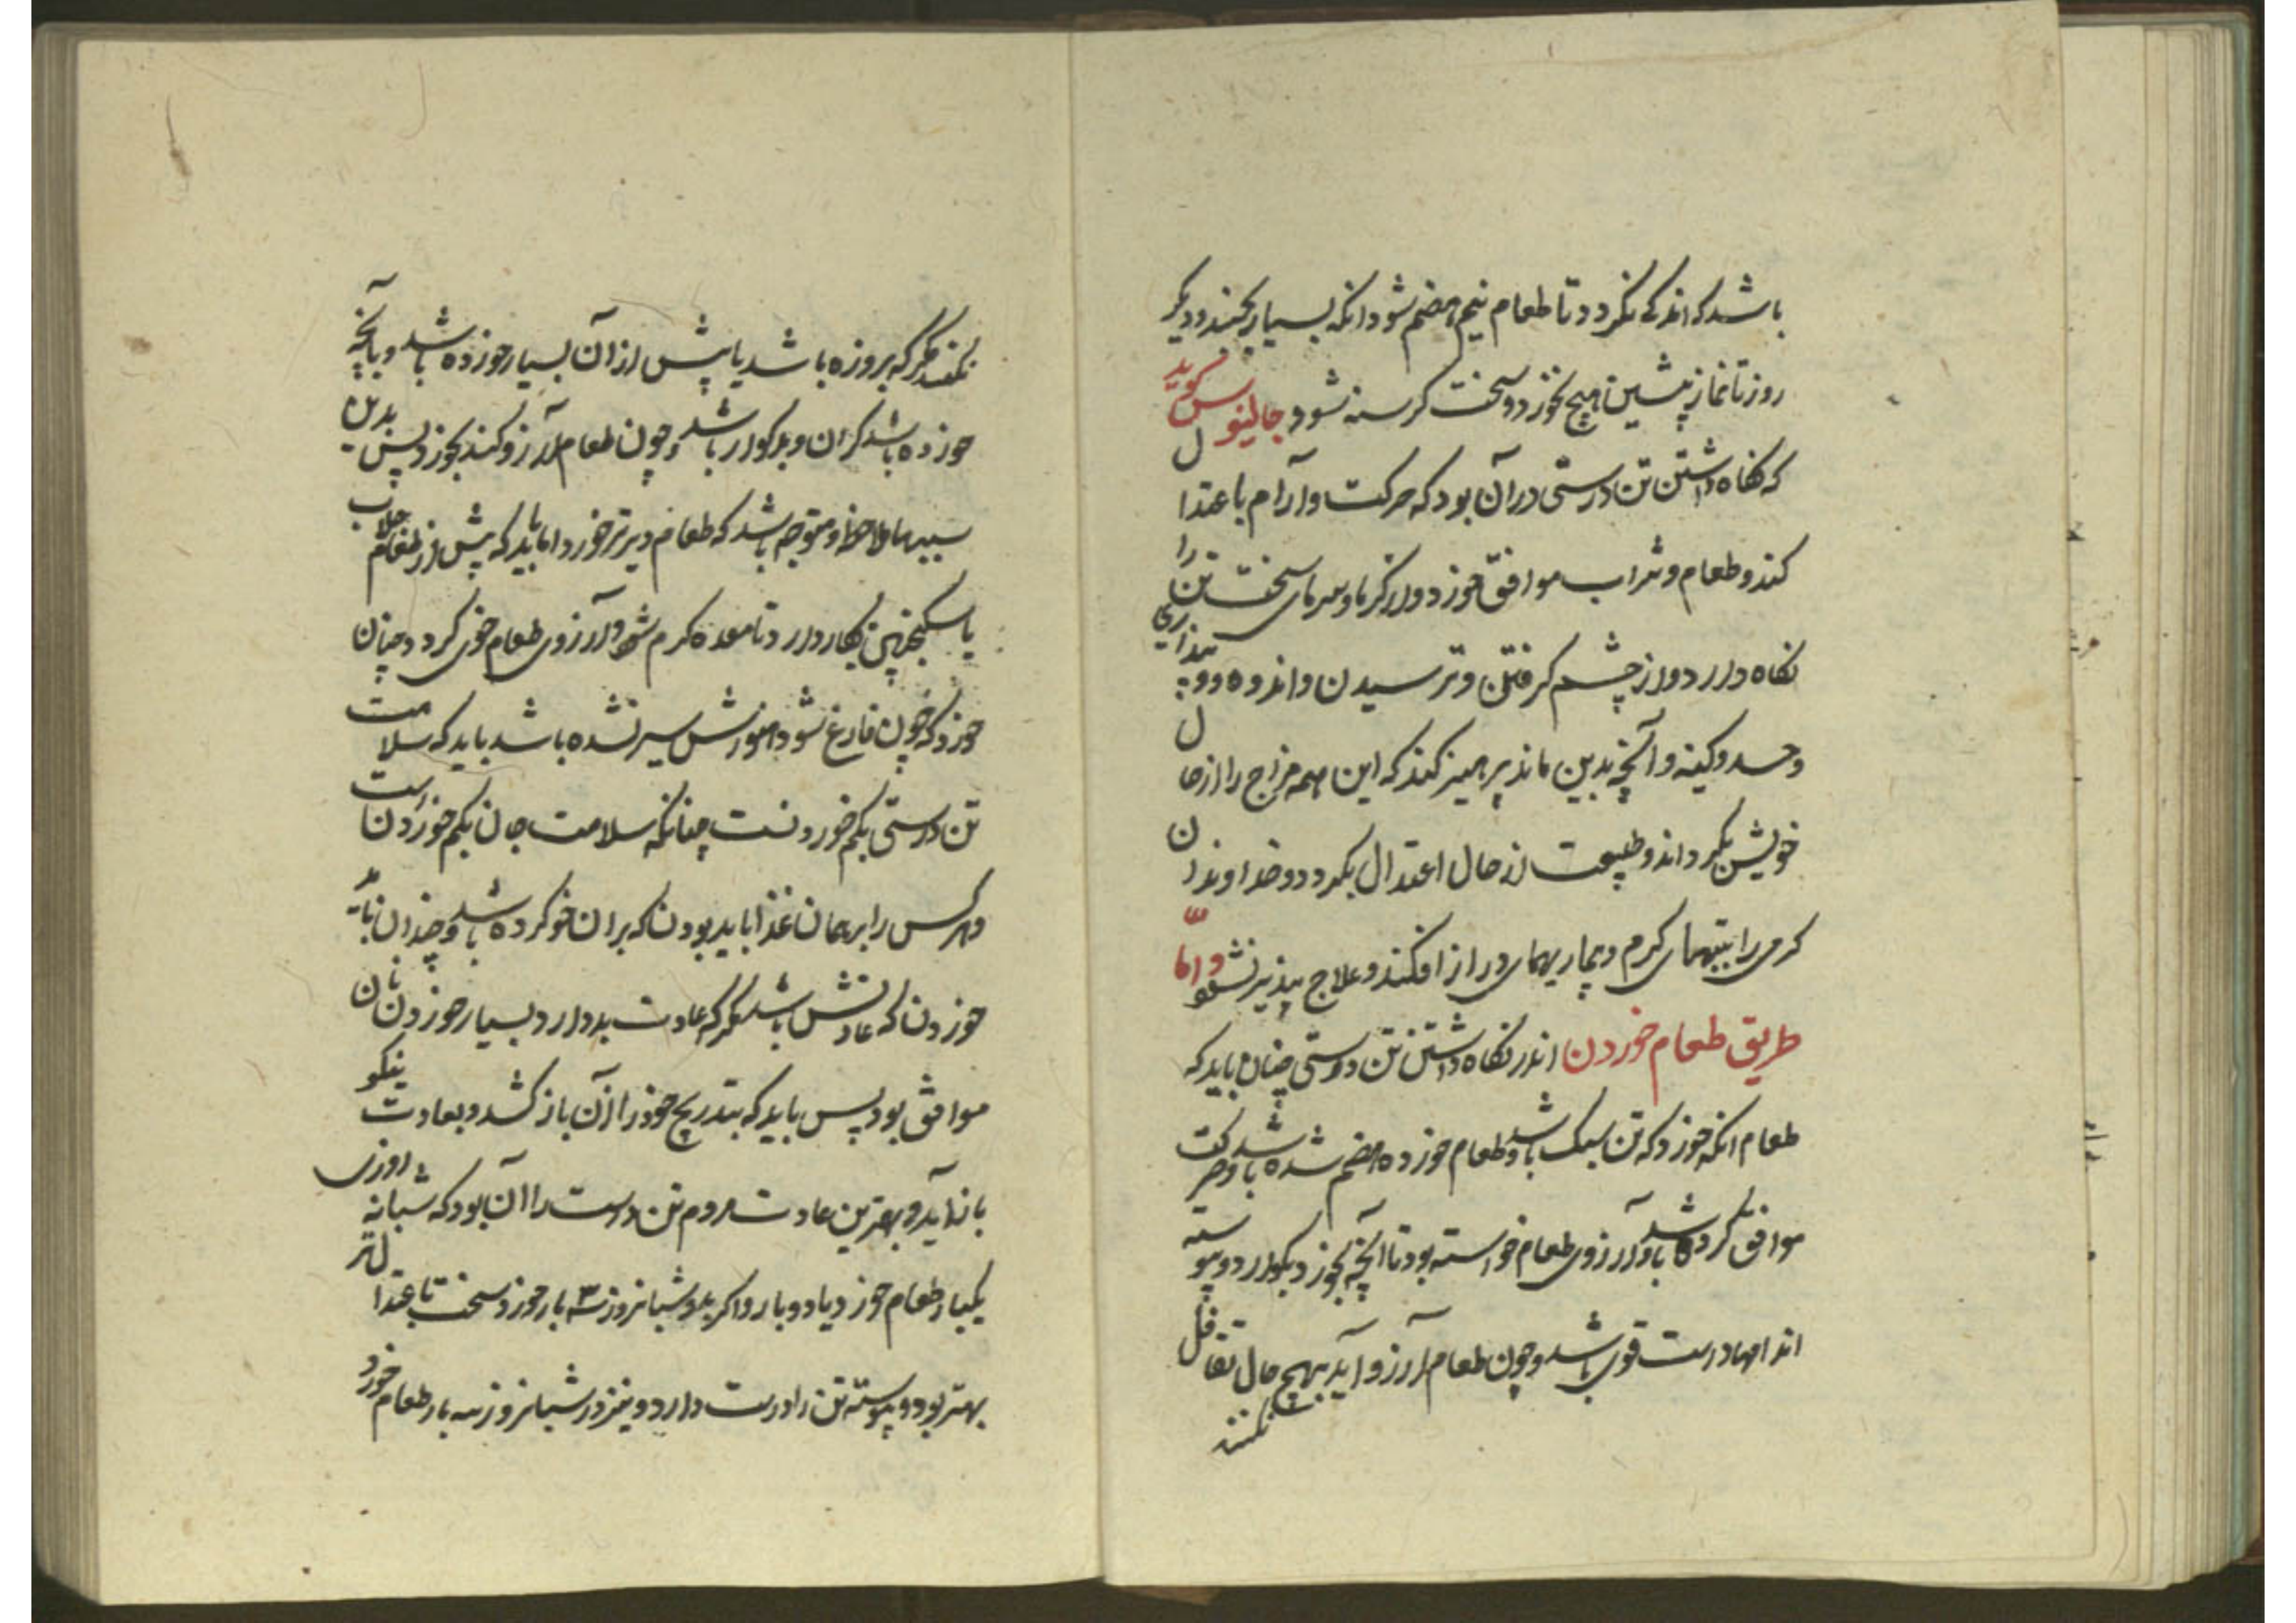 باشد که اندکی بگردد تا طعام نیم هضم شود انکه بسیار بجنبد و دیگر
روز تا نماز پیشین هیچ نخورد و سخت کرسنه شود جالینوس کوید
که نکاه داشتن تن درستی در آن بود که حرکت و آرام باعتدال
کند و طعام و شراب موافق خورد و از کرما و سرمای سخت تن را
نکاه دارد و از چشم کرفتن و ترسیدن و اندوه و
و حسد و کینه و آنچه بدین ماند پرهیز کند که این همه مزاج را از حال
خویش بگرداند و طبیعت از حال اعتدال بگردد و خداوندان
کرمی را بتبهای کرم و بیماریهای دراز افکند و علاج پذیر نشود و اما
طریق طعام خوردن اندر نکاه داشتن تن درستی چنان باید که
طعام انکه خورد که تن سبک باشد و طعام خورده هضم شده باشد و حرکت
موافق کرده باشد و آرزوی طعام خواسته بود تا آنچه بخورد بکوارد و پیوسته
اندامها درست قوی باشد و چون طعام آرزو آید بهیچ حال تغافل
نکنند
نکنند مگر که بروزه باشد یا پیش از آن بسیار خورده باشد و یا آنچه
خورده باشد کران و بدکوار باشد و چون طعام آرزو کند بخورد پس
ملاحظه و متوجه باشد که طعام دیرتر خورد اما باید که پیش از طعام جلاب
یا سکنجبین بکار دارد تا معده کرم شود و آرزوی طعام خوی کرد و چنان
خورد که چون فارغ شود هنوزش سیر نشده باشد باید که سلامت
تن درستی بکم خوردنست چنانکه سلامت جان بکم خوردن است
و هر کس را بر همان غذا باید بودن که بر آن خو کرده باشد و چندان باید
خوردن که عادتش باشد مگر که عادت بد دارد بسیار خوردن نان
موافق بود پس باید که بتدریج خود را از آن باز کشد و بعادت نیکو
باز آید و بهترین عادت مردم تن درست را آن بود که شبانه روزی
یکبار طعام خورد یا دو بار و اکر بدو شبانروز ۳ بار خورد سخت باعتدال تر
بهتر بود و پیوسته تن را درست دارد و نیز در شبانروز سه بار طعام خورد